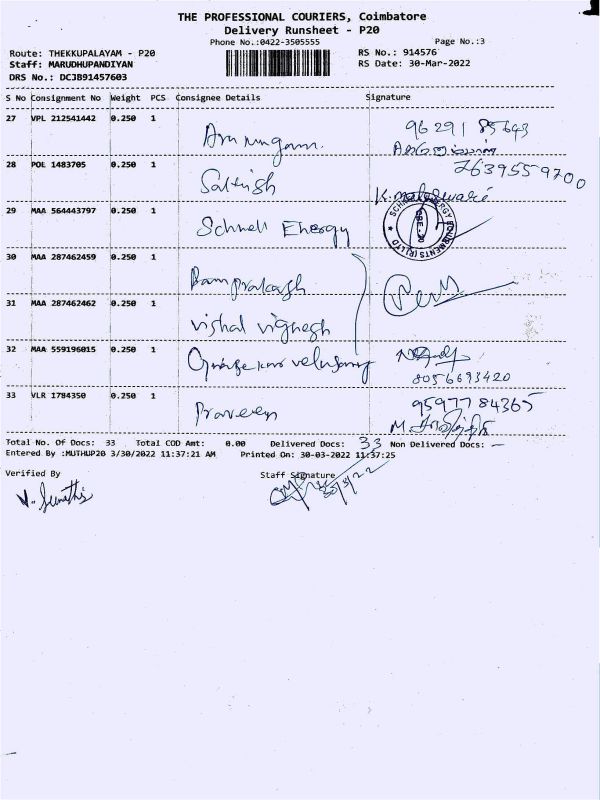 THE PROFESSIONAL COURIERS, Coimbatore
Delivery Runsheet - P20
Phone No.:0422-3505555 Page No.:3
Route: THEKKUPALAYAM - P20 RS No.: 914576
Staff: MARUDHUPANDIYAN RS Date: 30-Mar-2022
DRS No.: DCJB91457603
S No Consignment No Weight PCS Consignee Details Signature
27 VPL 212541442 0.250 1 Arumugam. 96291 85643
28 POL 1483705 0.250 1 Sathish 7639559700
K.maheswari
29 MAA 564443797 0.250 1 Schnell Energy
30 MAA 287462459 0.250 1 Ramprakash
31 MAA 287462462 0.250 1 Vishal vignesh
32 MAA 559196015 0.250 1 velusamy
8056693420
33 VLR 1784350 0.250 1 Praveen 95977 84365
Total No. Of Docs: 33 Total COD Amt: 0.00 Delivered Docs: 33 Non Delivered Docs: —
Entered By :MUTHUP20 3/30/2022 11:37:21 AM Printed On: 30-03-2022 11:37:25
Verified By Staff Signature
30/3/22